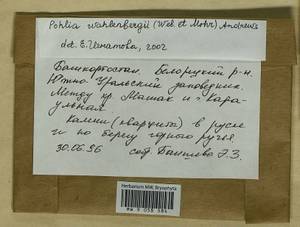 Pohlia wahlenbergii (Web. et Mohr) Andrews
det. Е. Игнатова, 2002
Башкортостан Белорецкий р-н.
Южно-Уральский заповедник.
Между хр. Машак и г. Кара-
ульная.
Камни (кварцита) в русле
и по берегу горного ручья
30.06.96 соб. Баишева Э.З.
Herbarium MW, Bryophyta